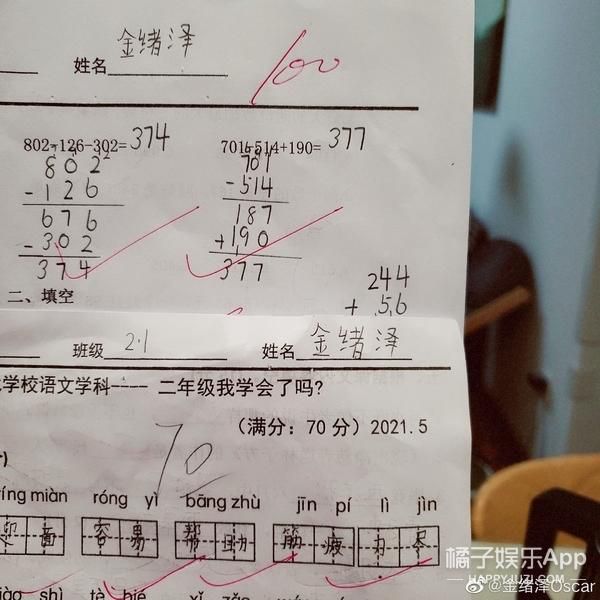 姓名 金绪泽
100
802-126-302=374 701-514+190=377
802 701
-126 -514
676 187
-302 +190
374 377
244
+ 56
二、填空
班级 2.1 姓名 金绪泽
学校语文学科---- 二年级我学会了吗?
(满分：70分) 2021.5
70
íng miàn róng yì bāng zhù jīn pí lì jìn
面 容易 帮助 筋疲力尽
橘子娱乐App
HAPPYJUZI.COM
@金绪泽Oscar